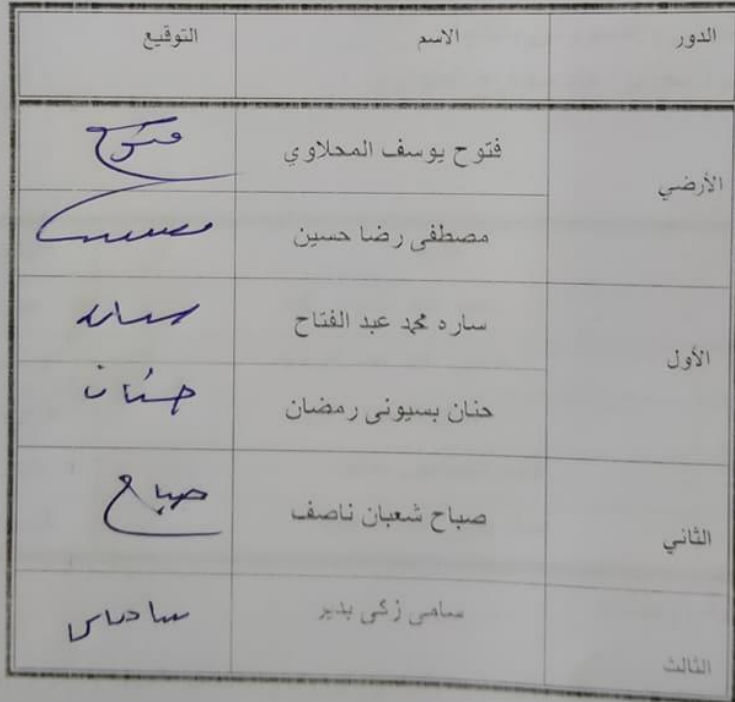 الدور الاسم التوقيع
الأرضي
فتوح يوسف المحلاوي فتوح
مصطفى رضا حسين مصطفى
الأول
ساره محمد عبد الفتاح ساره
حنان بسيونى رمضان حنان
الثاني
صباح شعبان ناصف صباح
الثالث
سامى زكى بدير